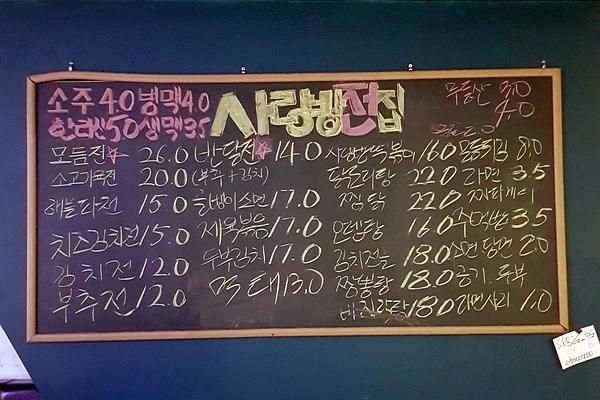 소주 4.0 병맥 4.0
한라산 5.0 생맥 3.5
사랑방전집
3.0
4.0
모듬전☆ 26.0
소고기육전 20.0
해물파전 15.0
치즈김치전 15.0
김치전 12.0
부추전 12.0
반달전☆ 14.0
(부추+김치)
골뱅이소면 17.0
제육볶음 17.0
두부김치 17.0
먹태 13.0
사랑방떡볶이 16.0
닭도리탕 22.0
찜닭 22.0
오뎅탕 16.0
김치전골 18.0
짬뽕탕 18.0
18.0
모듬튀김 8.0
라면 3.5
짜파게티
주먹밥 3.5
소면 당면 2.0
공기.두부
라면사리 1.0